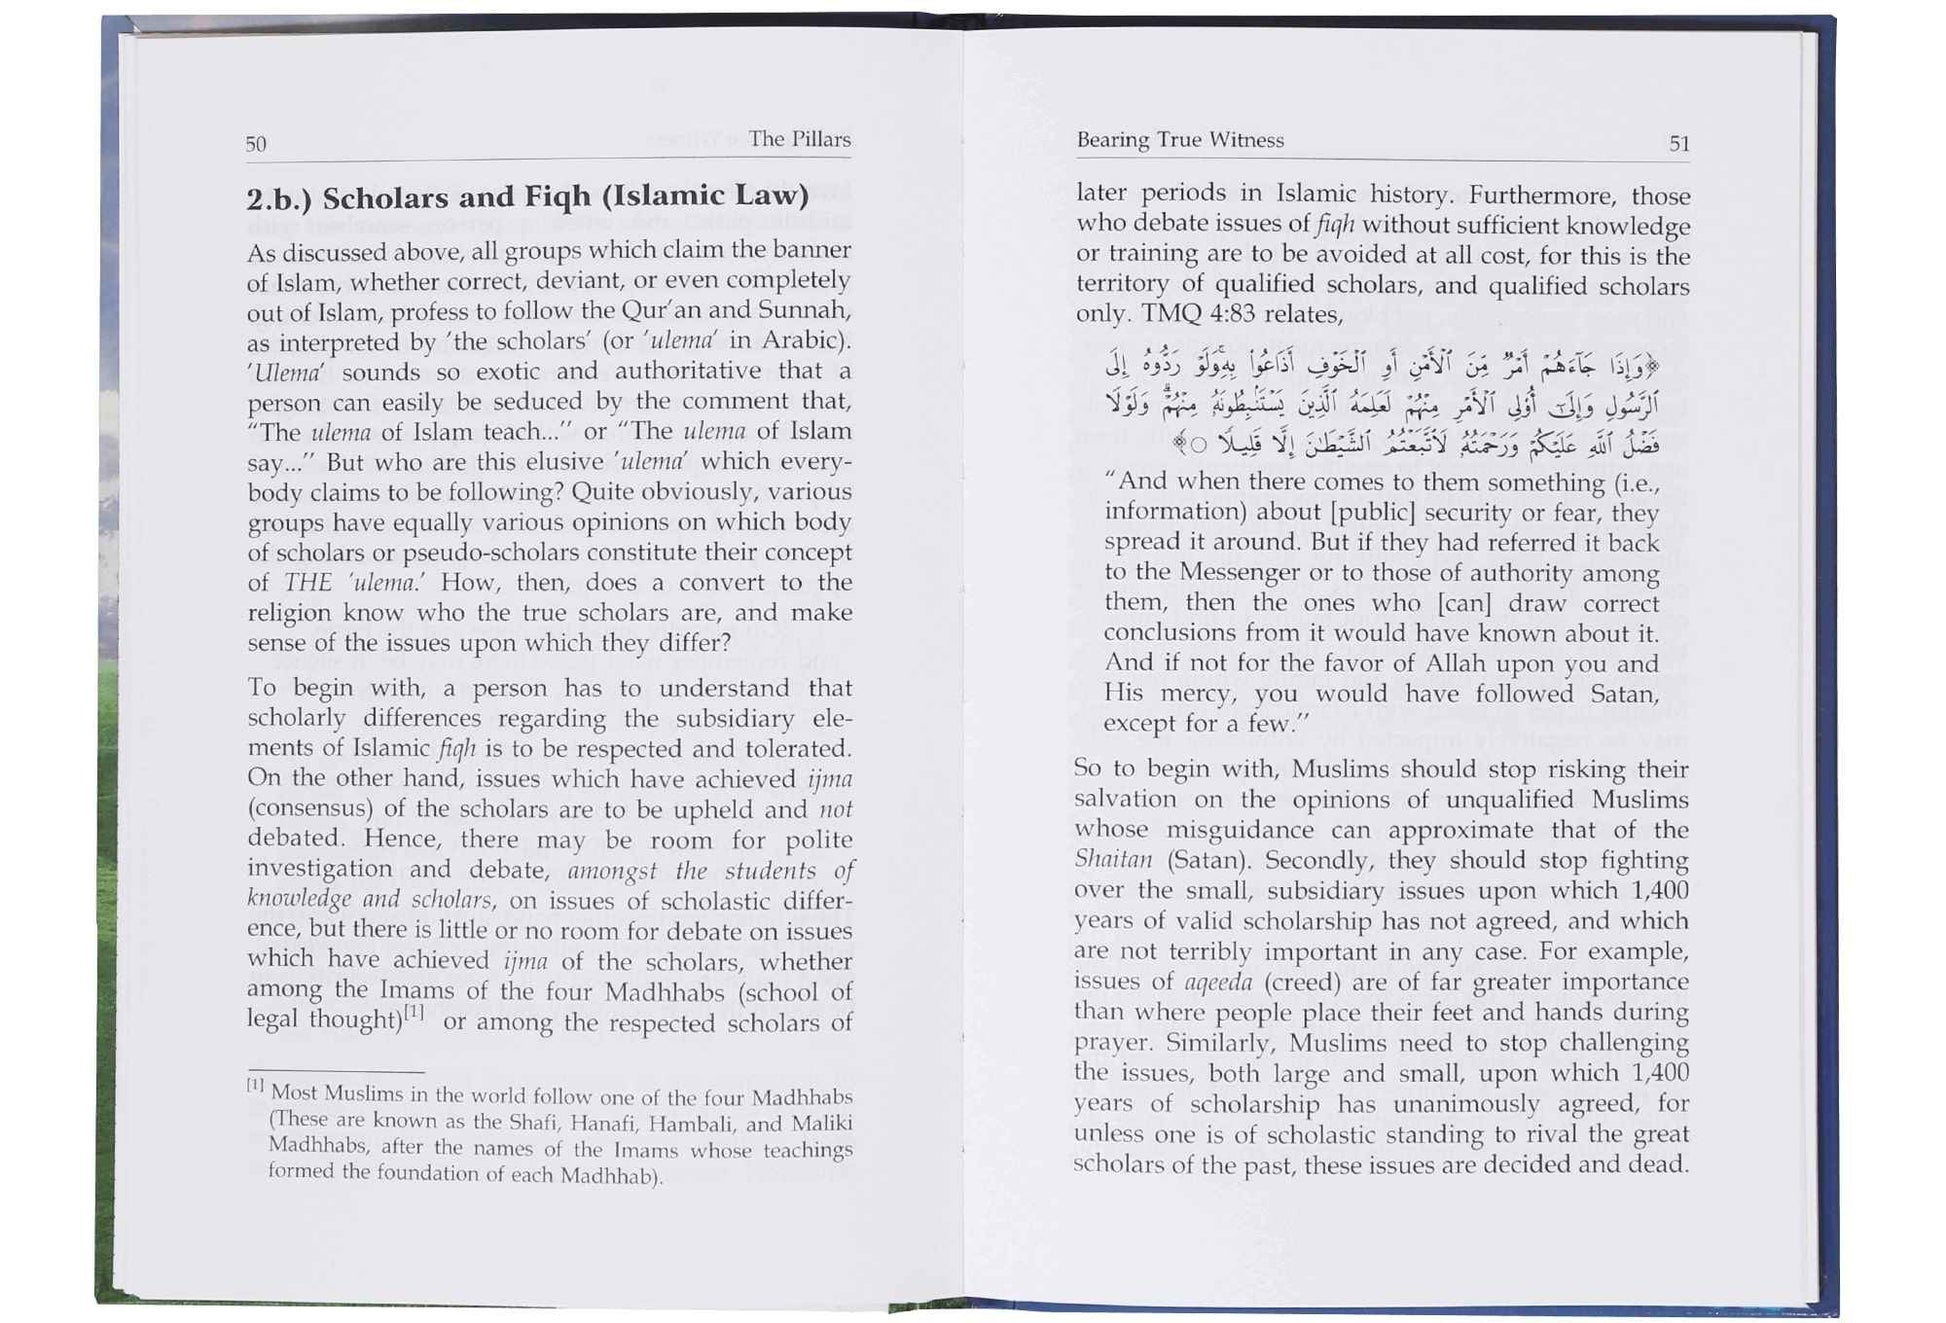 50 The Pillars
2.b.) Scholars and Fiqh (Islamic Law)
As discussed above, all groups which claim the banner
of Islam, whether correct, deviant, or even completely
out of Islam, profess to follow the Qur'an and Sunnah,
as interpreted by 'the scholars' (or 'ulema' in Arabic).
'Ulema' sounds so exotic and authoritative that a
person can easily be seduced by the comment that,
“The ulema of Islam teach...” or “The ulema of Islam
say...” But who are this elusive 'ulema' which every-
body claims to be following? Quite obviously, various
groups have equally various opinions on which body
of scholars or pseudo-scholars constitute their concept
of THE 'ulema.' How, then, does a convert to the
religion know who the true scholars are, and make
sense of the issues upon which they differ?
To begin with, a person has to understand that
scholarly differences regarding the subsidiary ele-
ments of Islamic fiqh is to be respected and tolerated.
On the other hand, issues which have achieved ijma
(consensus) of the scholars are to be upheld and not
debated. Hence, there may be room for polite
investigation and debate, amongst the students of
knowledge and scholars, on issues of scholastic differ-
ence, but there is little or no room for debate on issues
which have achieved ijma of the scholars, whether
among the Imams of the four Madhhabs (school of
legal thought)[1] or among the respected scholars of
[1] Most Muslims in the world follow one of the four Madhhabs
(These are known as the Shafi, Hanafi, Hambali, and Maliki
Madhhabs, after the names of the Imams whose teachings
formed the foundation of each Madhhab).
Bearing True Witness 51
later periods in Islamic history. Furthermore, those
who debate issues of fiqh without sufficient knowledge
or training are to be avoided at all cost, for this is the
territory of qualified scholars, and qualified scholars
only. TMQ 4:83 relates,
﴿وَإِذَا جَآءَهُمْ أَمْرٌ مِّنَ ٱلْأَمْنِ أَوِ ٱلْخَوْفِ أَذَاعُوا۟ بِهِۦۖ وَلَوْ رَدُّوهُ إِلَى
ٱلرَّسُولِ وَإِلَىٰٓ أُو۟لِى ٱلْأَمْرِ مِنْهُمْ لَعَلِمَهُ ٱلَّذِينَ يَسْتَنۢبِطُونَهُۥ مِنْهُمْۗ وَلَوْلَا
فَضْلُ ٱللَّهِ عَلَيْكُمْ وَرَحْمَتُهُۥ لَٱتَّبَعْتُمُ ٱلشَّيْطَٰنَ إِلَّا قَلِيلًا ○﴾
“And when there comes to them something (i.e.,
information) about [public] security or fear, they
spread it around. But if they had referred it back
to the Messenger or to those of authority among
them, then the ones who [can] draw correct
conclusions from it would have known about it.
And if not for the favor of Allah upon you and
His mercy, you would have followed Satan,
except for a few.”
So to begin with, Muslims should stop risking their
salvation on the opinions of unqualified Muslims
whose misguidance can approximate that of the
Shaitan (Satan). Secondly, they should stop fighting
over the small, subsidiary issues upon which 1,400
years of valid scholarship has not agreed, and which
are not terribly important in any case. For example,
issues of aqeeda (creed) are of far greater importance
than where people place their feet and hands during
prayer. Similarly, Muslims need to stop challenging
the issues, both large and small, upon which 1,400
years of scholarship has unanimously agreed, for
unless one is of scholastic standing to rival the great
scholars of the past, these issues are decided and dead.